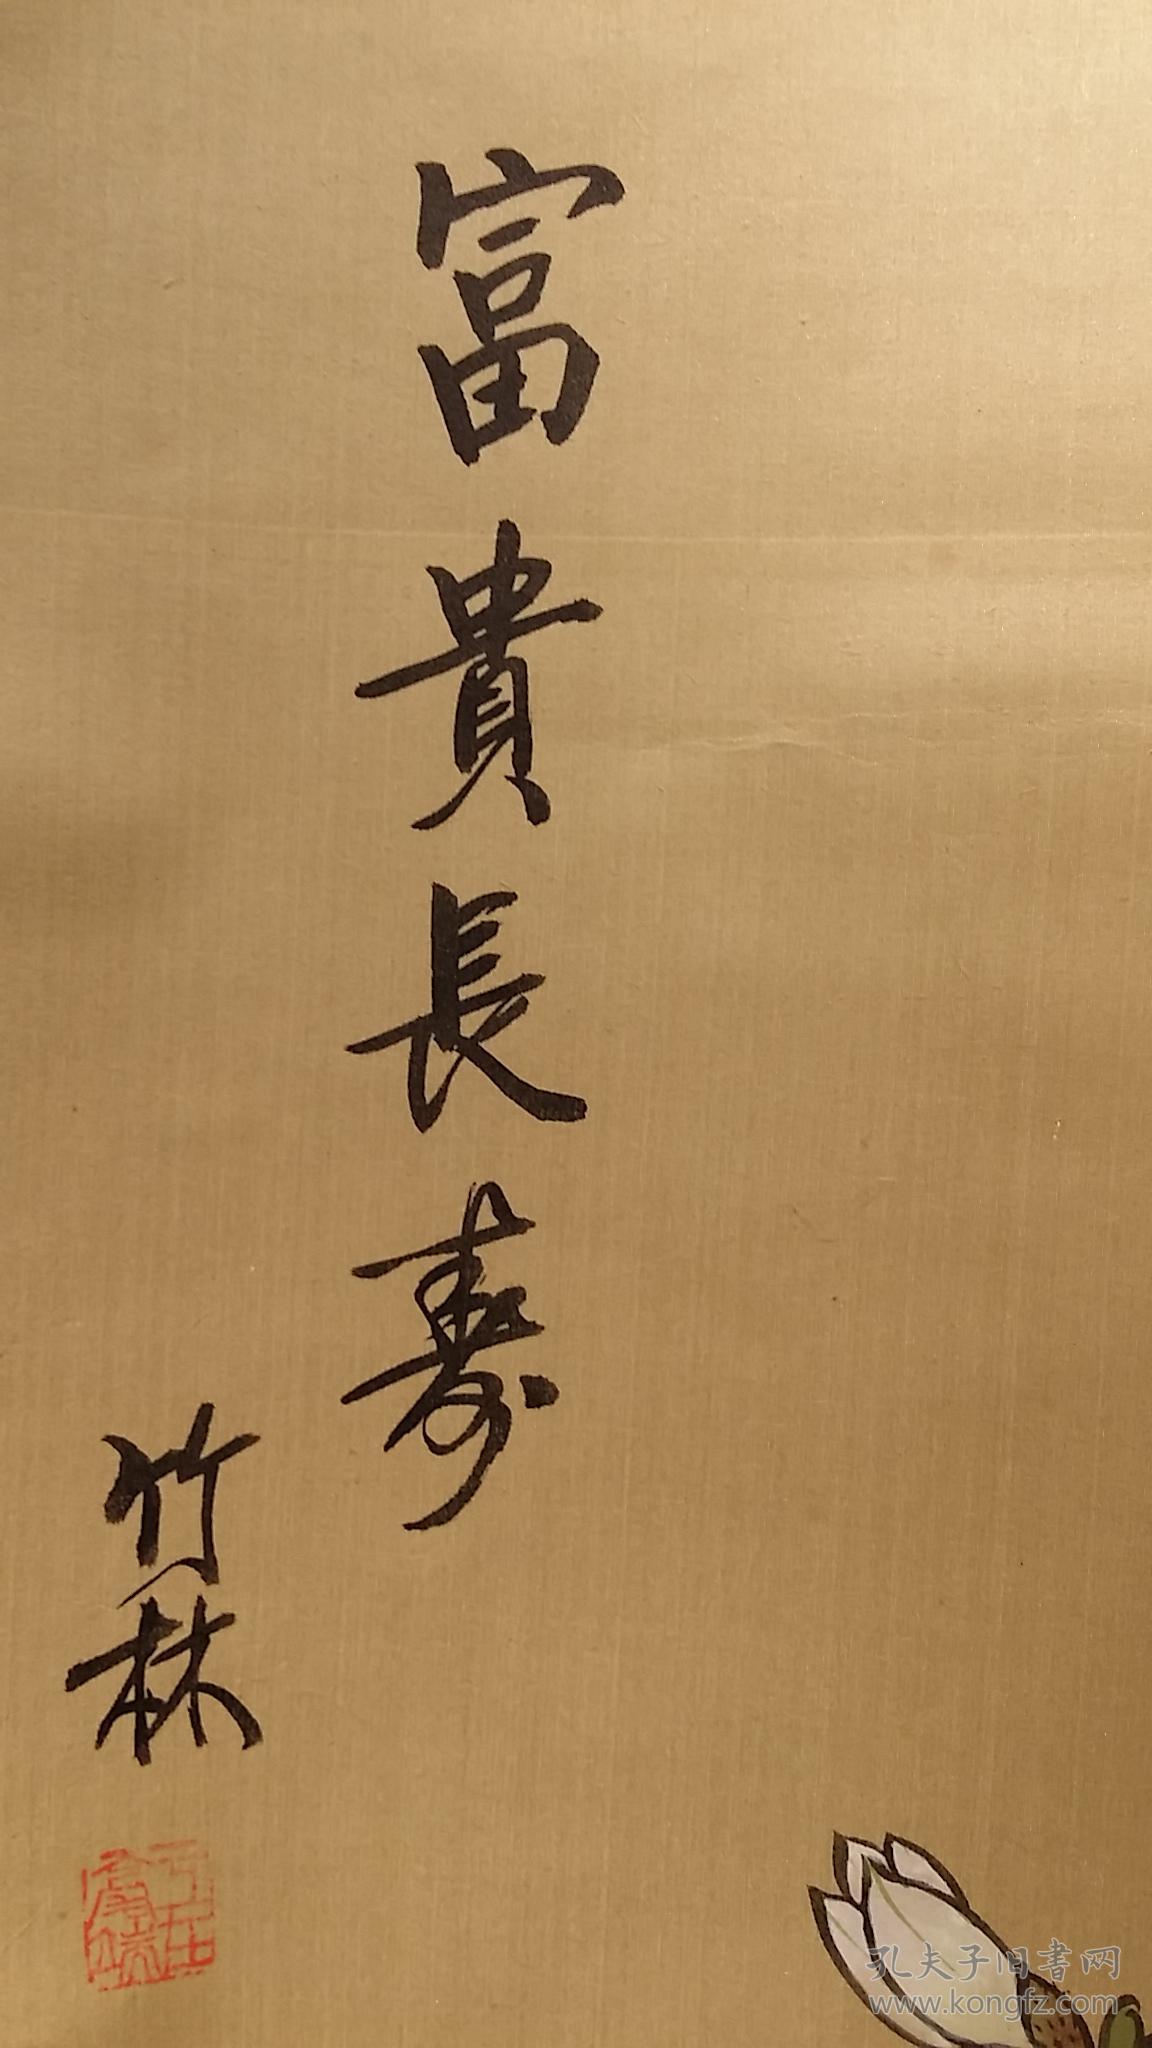 富貴長壽
竹林
孔夫子旧书网
www.kongfz.com